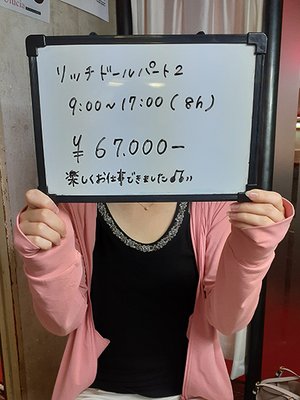 リッチドールパート2
9:00~17:00(8h)
¥67.000-
楽しくお仕事できました♪♫〃